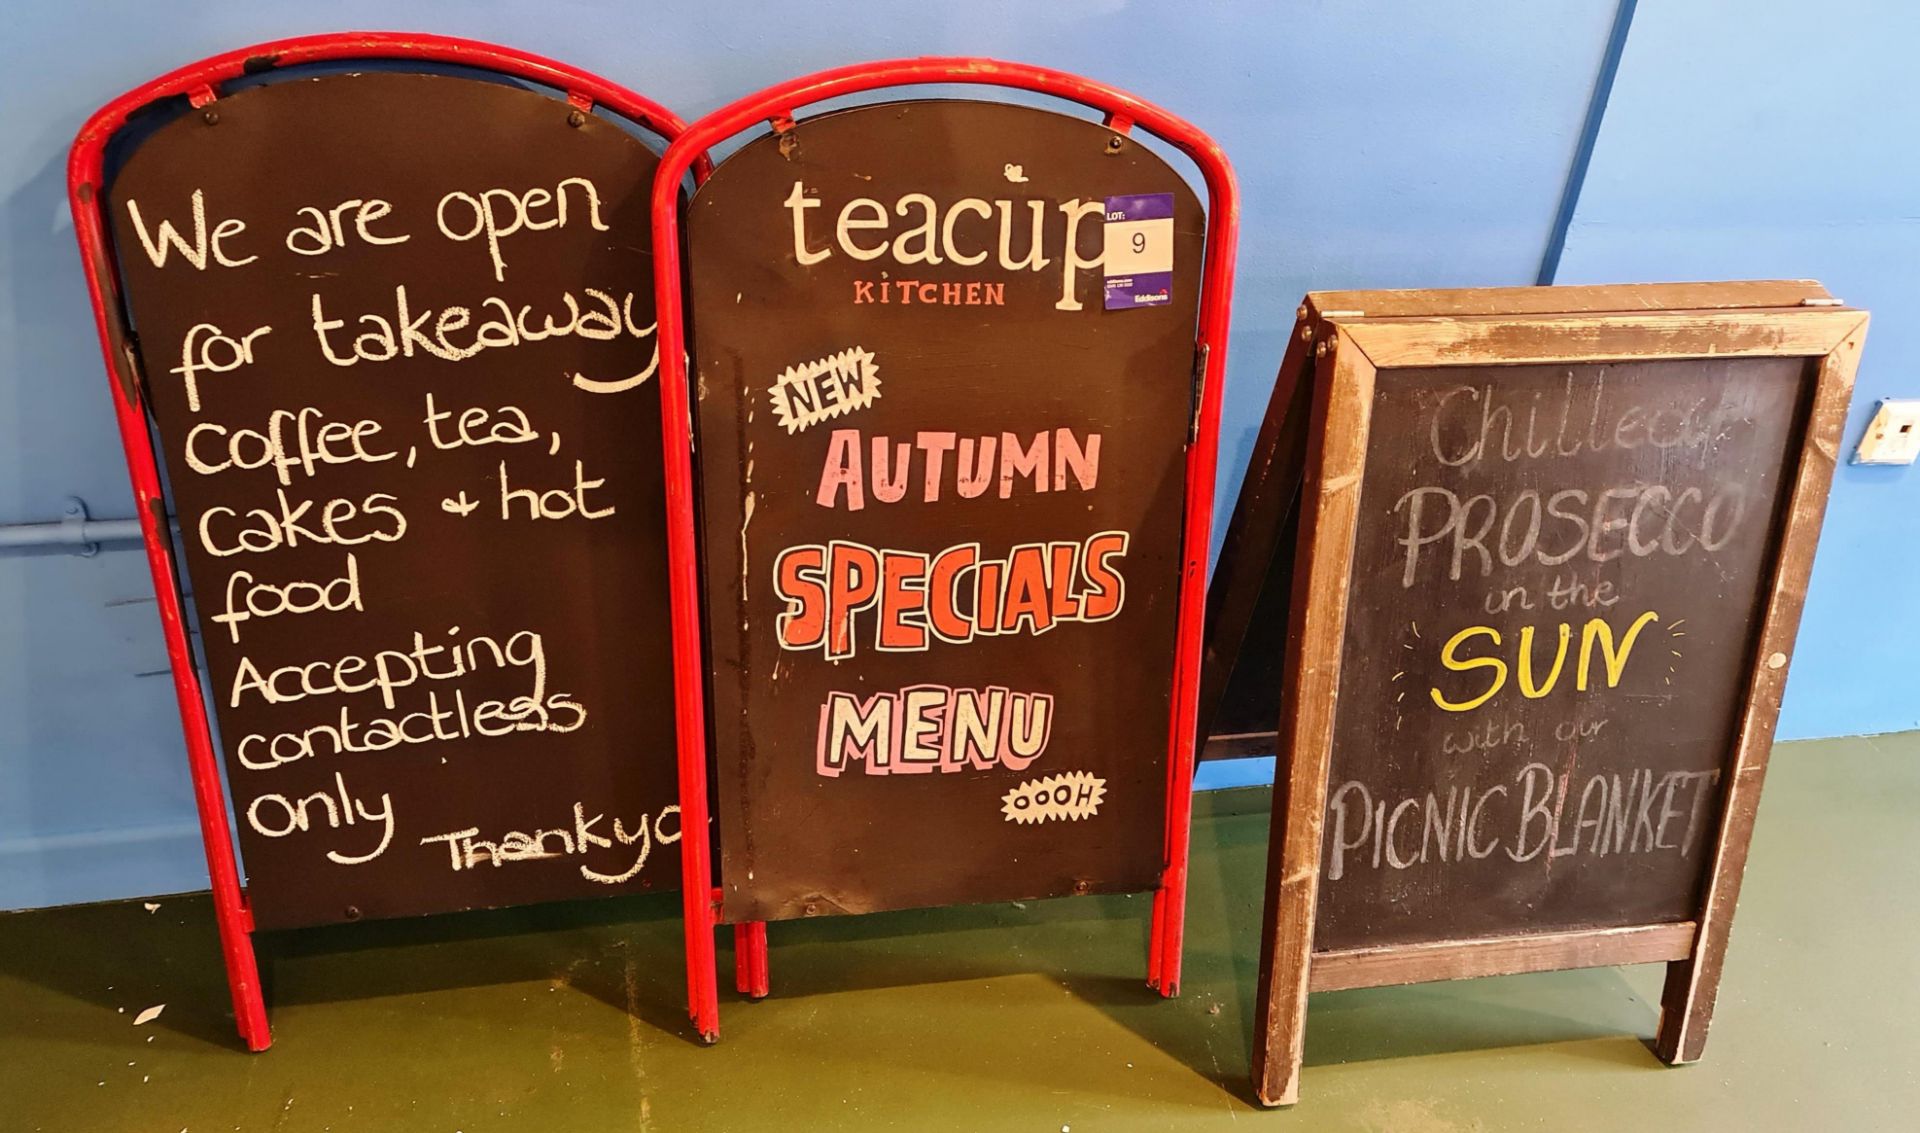 We are open
for takeaway
coffee, tea,
cakes + hot
food
Accepting
contactless
only
teacup
KITCHEN
LOT:
9
Eddisons
NEW
AUTUMN
SPECIALS
MENU
OOOH
Chilled
PROSECCO
in the
SUN
with our
PICNIC BLANKET